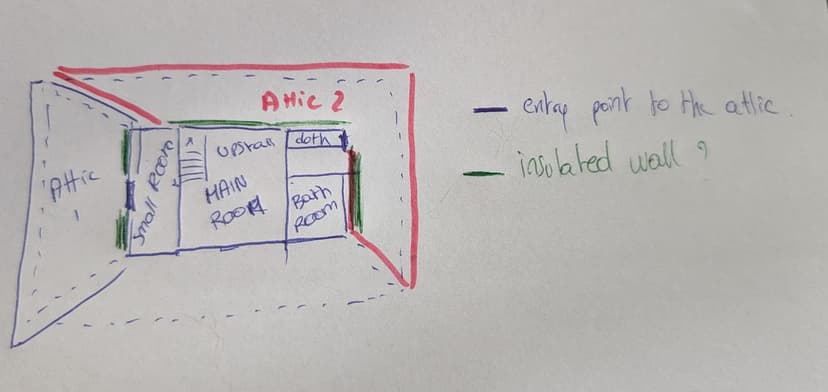 Attic 2
entry point to the attic.
insolated wall ?
Attic
1
Small Room
upstair
MAIN
ROOM
cloth
Bath
room